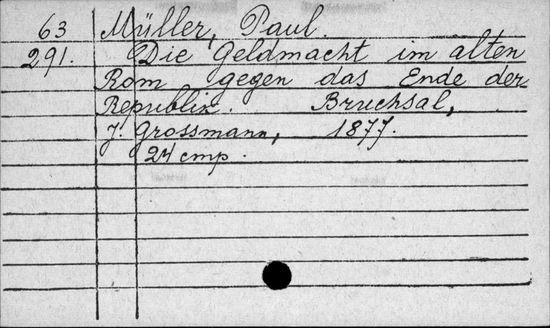 63 Müller, Paul.
291. Die Geldmacht im alten
Rom gegen das Ende der
Republik. Bruchsal,
J. Grossmann, 1877.
24 cmp.